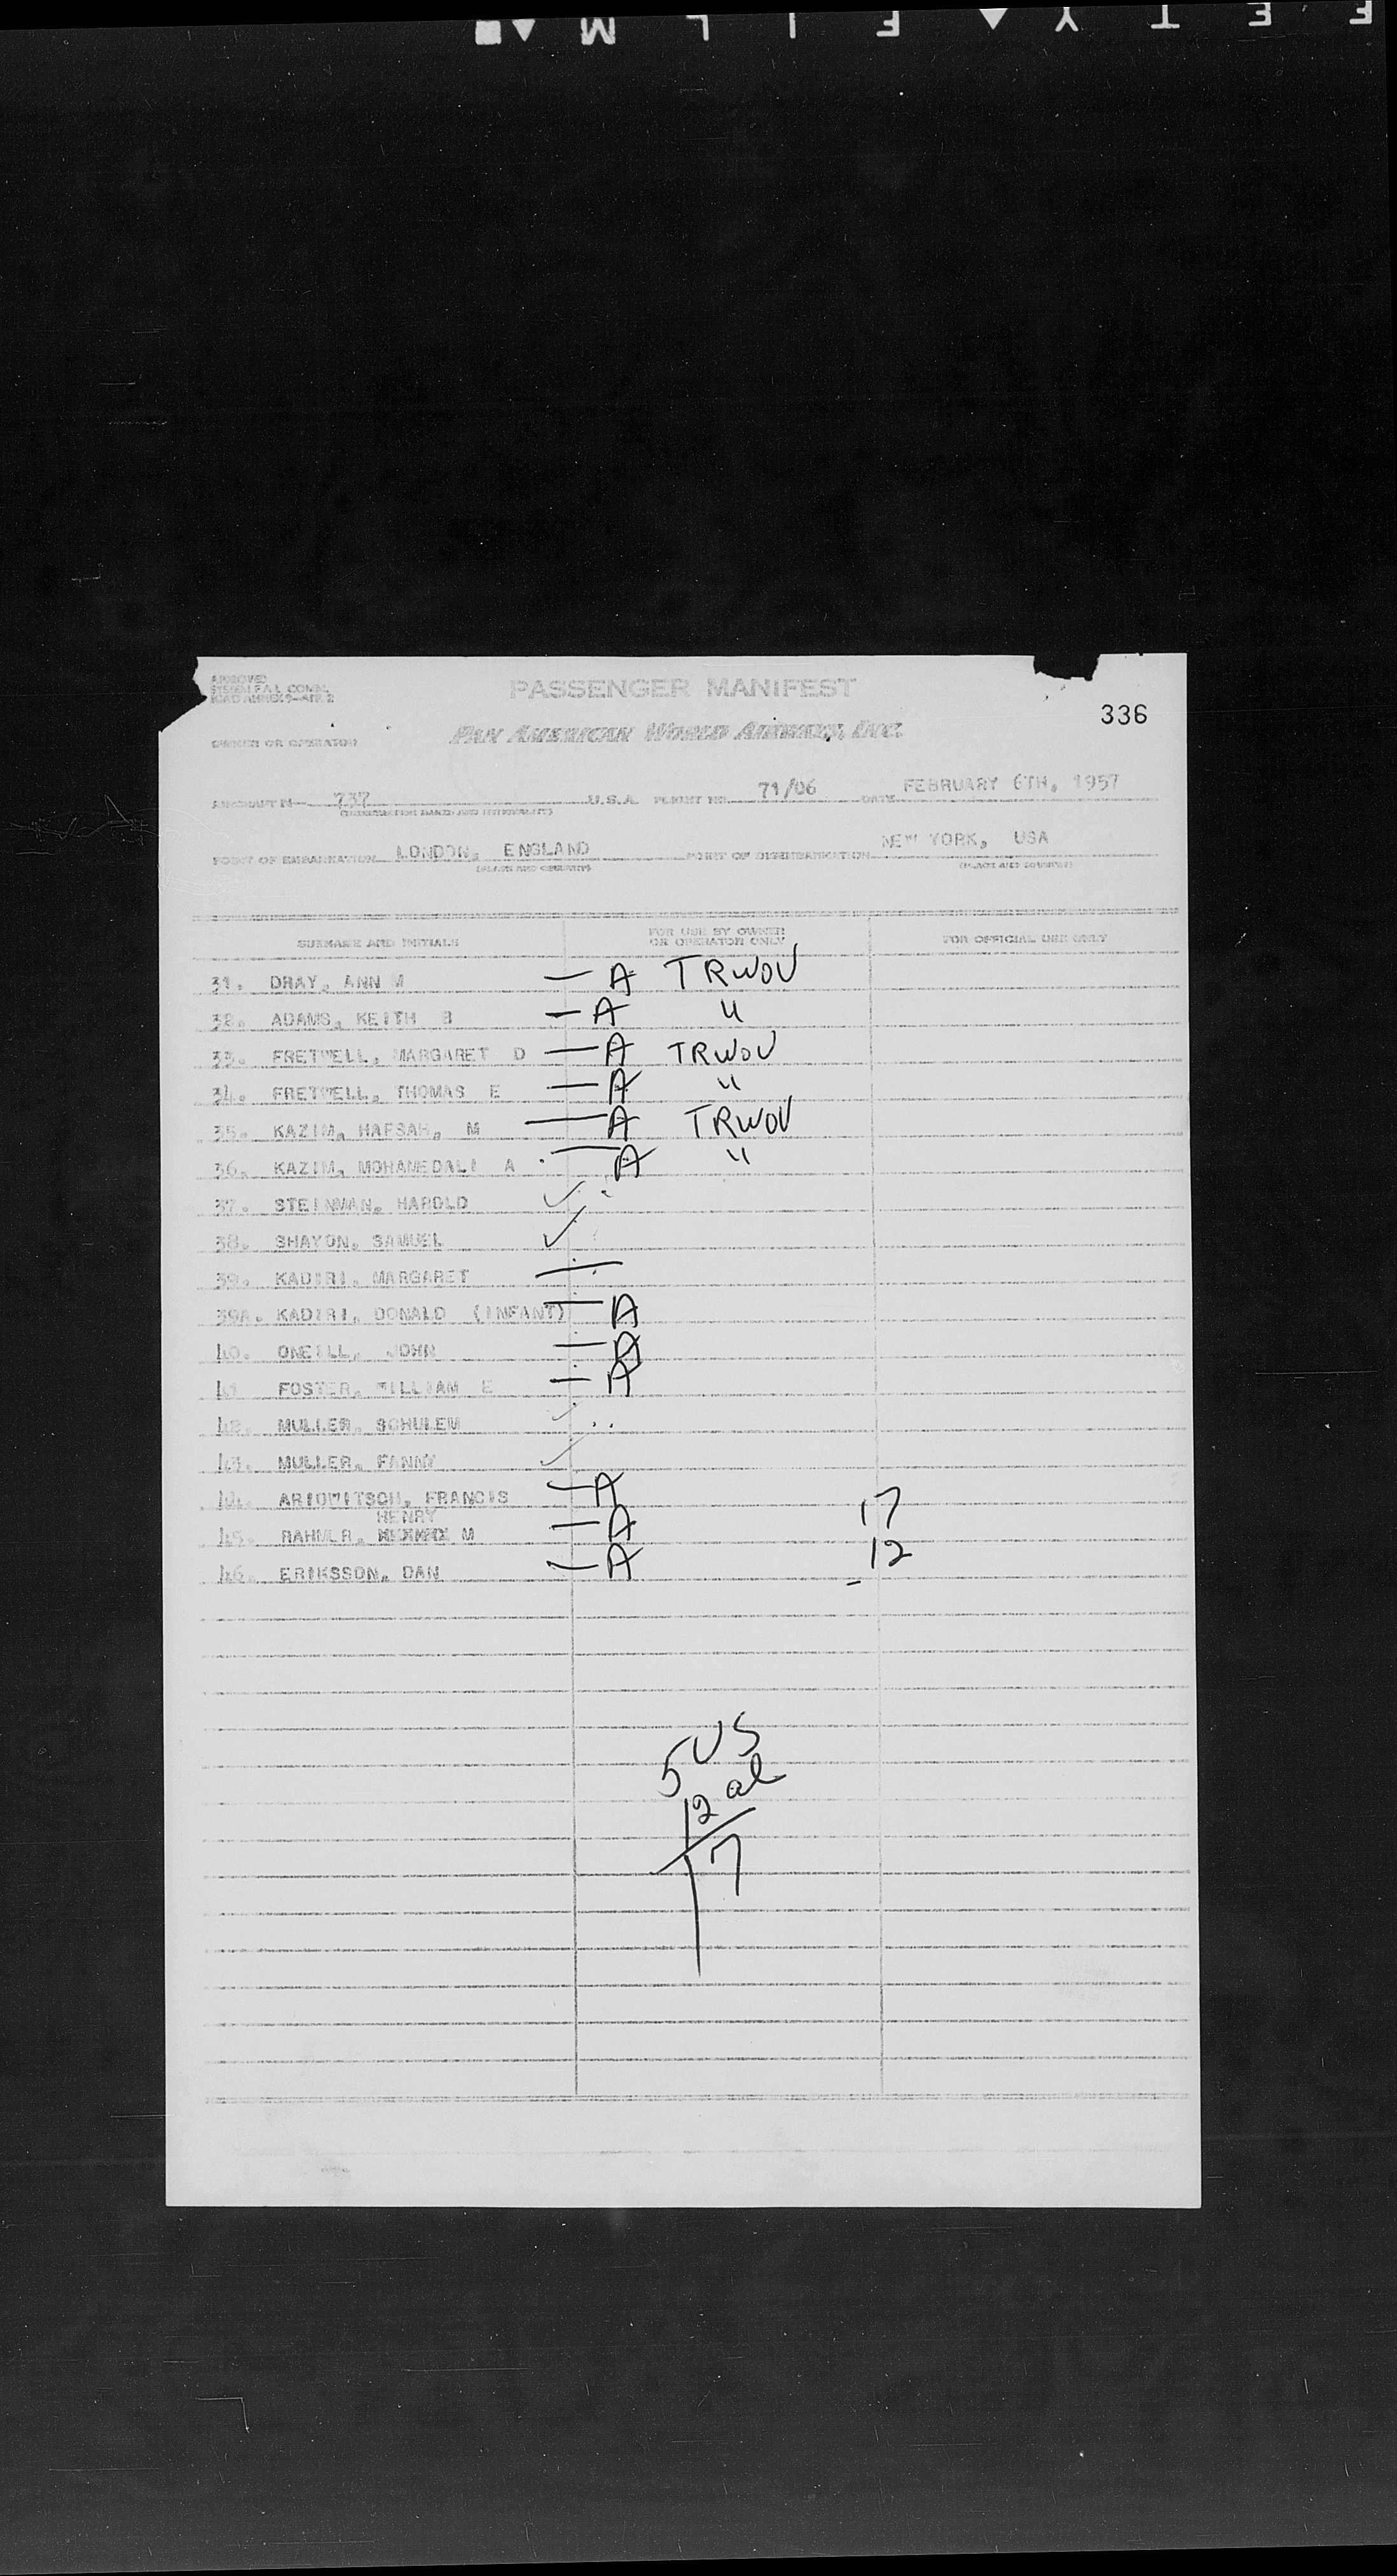 SAFETY FILM
336
APPROVED
SYSTEM F.A.L. COMM.
ICAO ANNEX 9—APP. 2
PASSENGER MANIFEST
OWNER OR OPERATOR PAN AMERICAN WORLD AIRWAYS, INC.
AIRCRAFT N— 737 U.S.A. FLIGHT NO. 71/06 DATE FEBRUARY 6TH, 1957
(REGISTRATION MARKS AND NATIONALITY)
POINT OF EMBARKATION LONDON, ENGLAND POINT OF DISEMBARKATION NEW YORK, USA
(PLACE AND COUNTRY) (PLACE AND COUNTRY)
SURNAME AND INITIALS FOR USE BY OWNER OR OPERATOR ONLY FOR OFFICIAL USE ONLY
31. DRAY, ANN M — A TRWOV
32. ADAMS, KEITH B — A "
33. FRETWELL, MARGARET D — A TRWOV
34. FRETWELL, THOMAS E — A "
35. KAZIM, HAFSAH, M — A TRWOV
36. KAZIM, MOHAMEDALI A — A "
37. STEINMAN, HAROLD ✓
38. SHAYON, SAMUEL ✓
39. KADIRI, MARGARET —
39A. KADIRI, DONALD (INFANT) — A
40. ONEILL, JOHN — A
41 FOSTER, WILLIAM E — A
42. MULLER, SCHULEM ✓
43. MULLER, FANNY ✓
44. ARIOWITSCH, FRANCIS — A
HENRY 17
45. RAHMER, M — A
46. ERIKSSON, DAN — A 12
5 US
12 al
17